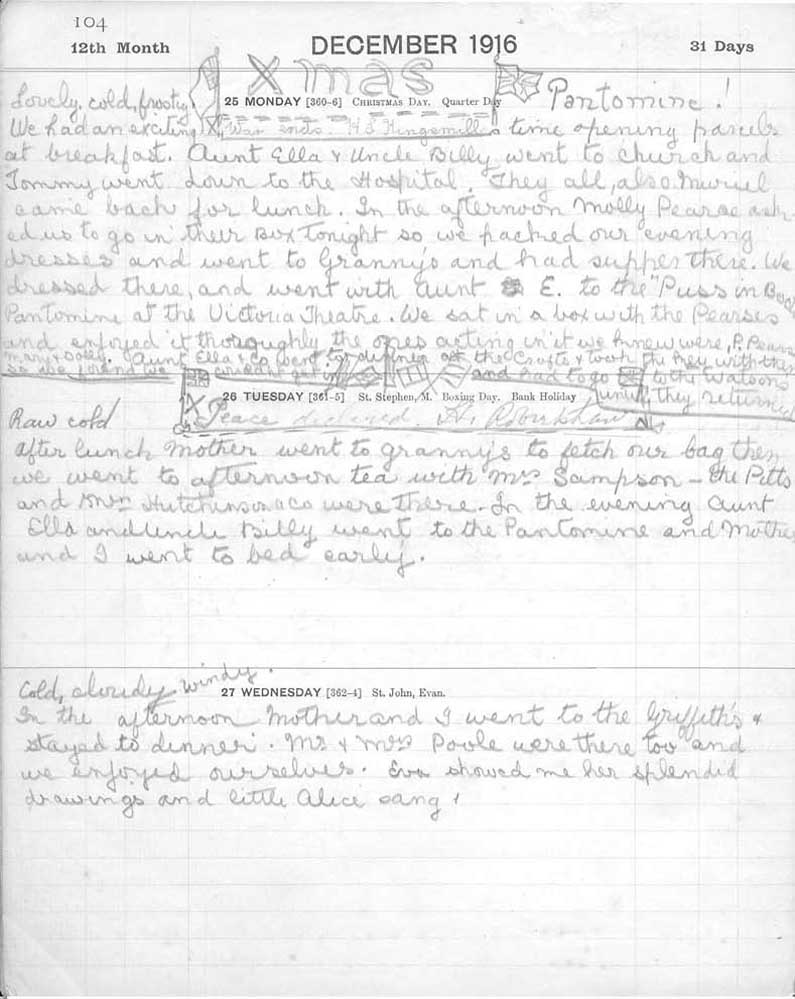 104
12th Month DECEMBER 1916 31 Days
Xmas
Lovely, cold, frosty, 25 MONDAY [360-6] CHRISTMAS DAY. Quarter Day Pantomine!
We had an exciting X, War ends. H S Kingsmill time opening parcels
at breakfast. Aunt Ella & Uncle Billy went to church and
Tommy went down to the Hospital. They all, also Muriel
came back for lunch. In the afternoon Molly Pearse ask-
ed us to go in their Box Tonight so we packed our evening
dresses and went to Granny's and had supper there. We
dressed there, and went with Aunt E. to the "Puss in Boo
Pantomine at the Victoria Theatre. We sat in a box with the Pearses
and enjoyed it thoroughly the ones acting in it we knew were, P. Pears
Mary & Dolly. Aunt Ella & Co went to dinner at the Crofts & took the key with them
so we found we couldnt get in and had to go to the Watsons
until they returned
26 TUESDAY [361-5] St. Stephen, M. Boxing Day. Bank Holiday
Raw cold X Peace declared. H.
After lunch Mother went to granny's to fetch our bag then
we went to afternoon tea with Mrs Sampson – the Pitts
and Mrs Hutchinson & co were there. In the evening Aunt
Ella and Uncle Billy went to the Pantomine and Mothe
and I went to bed early.
Cold, cloudy windy. 27 WEDNESDAY [362-4] St. John, Evan.
In the afternoon Mother and I went to the Griffith's &
stayed to dinner. Mr & Mrs Poole were there too and
we enjoyed ourselves. Eva showed me her splendid
drawings and little Alice sang!